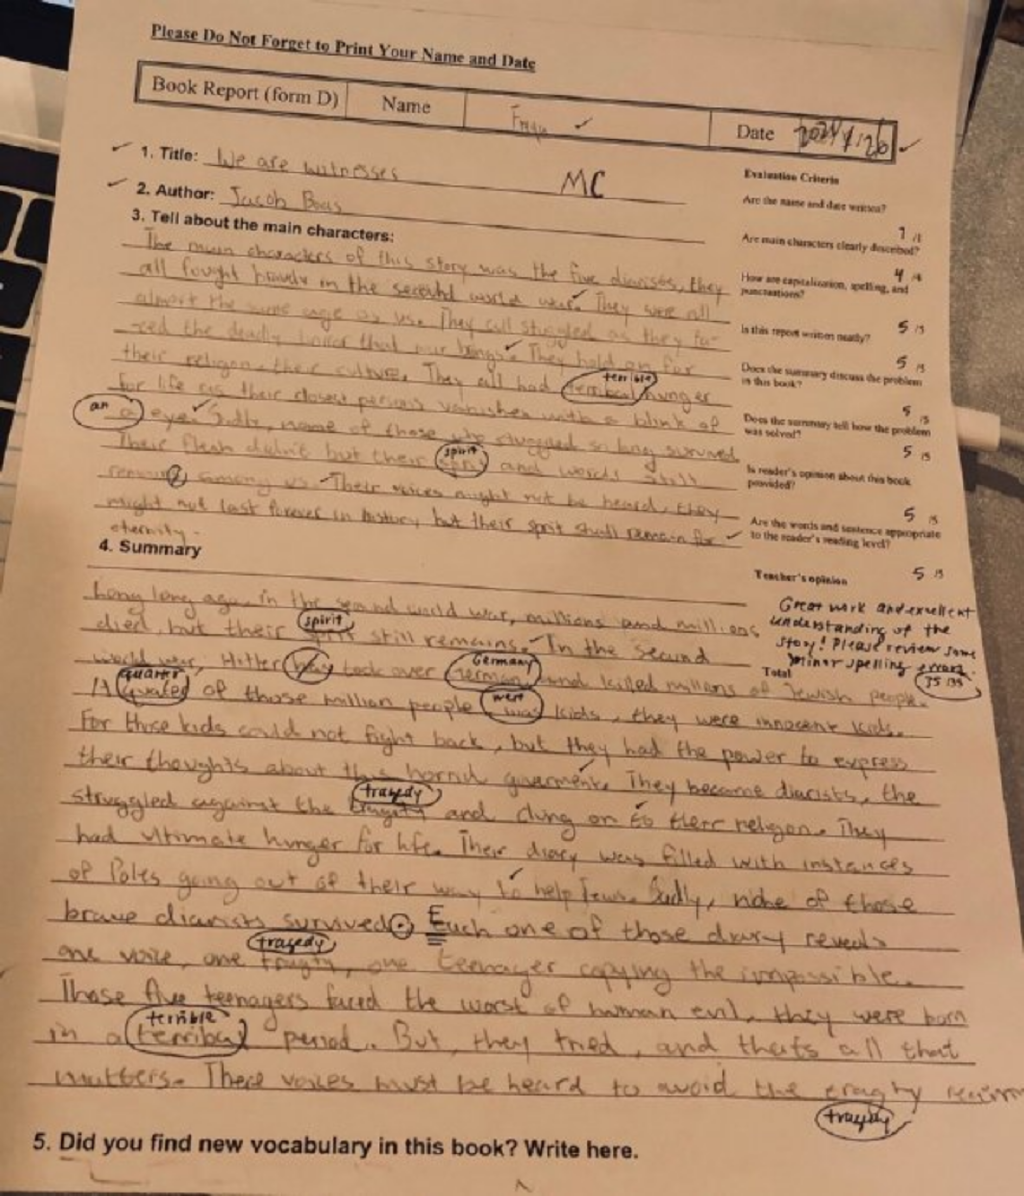 Please Do Not Forget to Print Your Name and Date
Book Report (form D) Name Date
1. Title: We are witnesses
MC
2. Author: Jacob Boas
3. Tell about the main characters:
The main characters of this story was the five diarists, they
all fought bravely in the second world war. They were all
almost the same age as us. They all stuggled as they fa-
ced the deadly They hold on for
their religion, their culture. They all had terribal hunger
terrible
for life as their closest persons vanishes with a blink of
an
a eye. Sadly, none of those who stuggled so long survived
Their flesh didn't but their and words still
spirit
among us. Their voices might not be heard, they
might not last forever in history but their sprit shall remain for
eternity.
4. Summary
Long long ago, in the second world war, millions and millions
died, but their still remains. In the second
spirit
world war, Hitler took over and killed millions of Jewish people.
Germany
quarter
A of those million people was kids, they were innocent kids.
were
For those kids could not fight back, but they had the power to express
their thoughts about this horrid They become diarists, the
struggled against the and clung on to religon. They
tragedy
had ultimate hunger for life. Their diary was filled with instances
of Poles going out of their way to help Jews. Sadly, none of those
brave diarists survived. Each one of those diary reveals
tragedy
one voice, one one teenager copying the impossible.
Those five teenagers faced the worst of human evil, they were born
terrible
in a terribal period. But, they tried, and thats all that
matters. There voices must be heard to avoid the
tragedy
5. Did you find new vocabulary in this book? Write here.
Evaluation Criteria
Are the name and date written?
1 /1
Are main characters clearly described?
4 /4
How are capitalization, spelling, and
punctuations?
5 /5
Is this report written neatly?
5 /5
Does the summary discuss the problem
in this book?
5 /5
Does the summary tell how the problem
was solved?
5 /5
Is reader's opinion about this book
provided?
5 /5
Are the words and sentence appropriate
to the reader's reading level?
5 /5
Teacher's opinion
Great work and excellent
understanding of the
story! Please review some
minor spelling errors.
Total
35